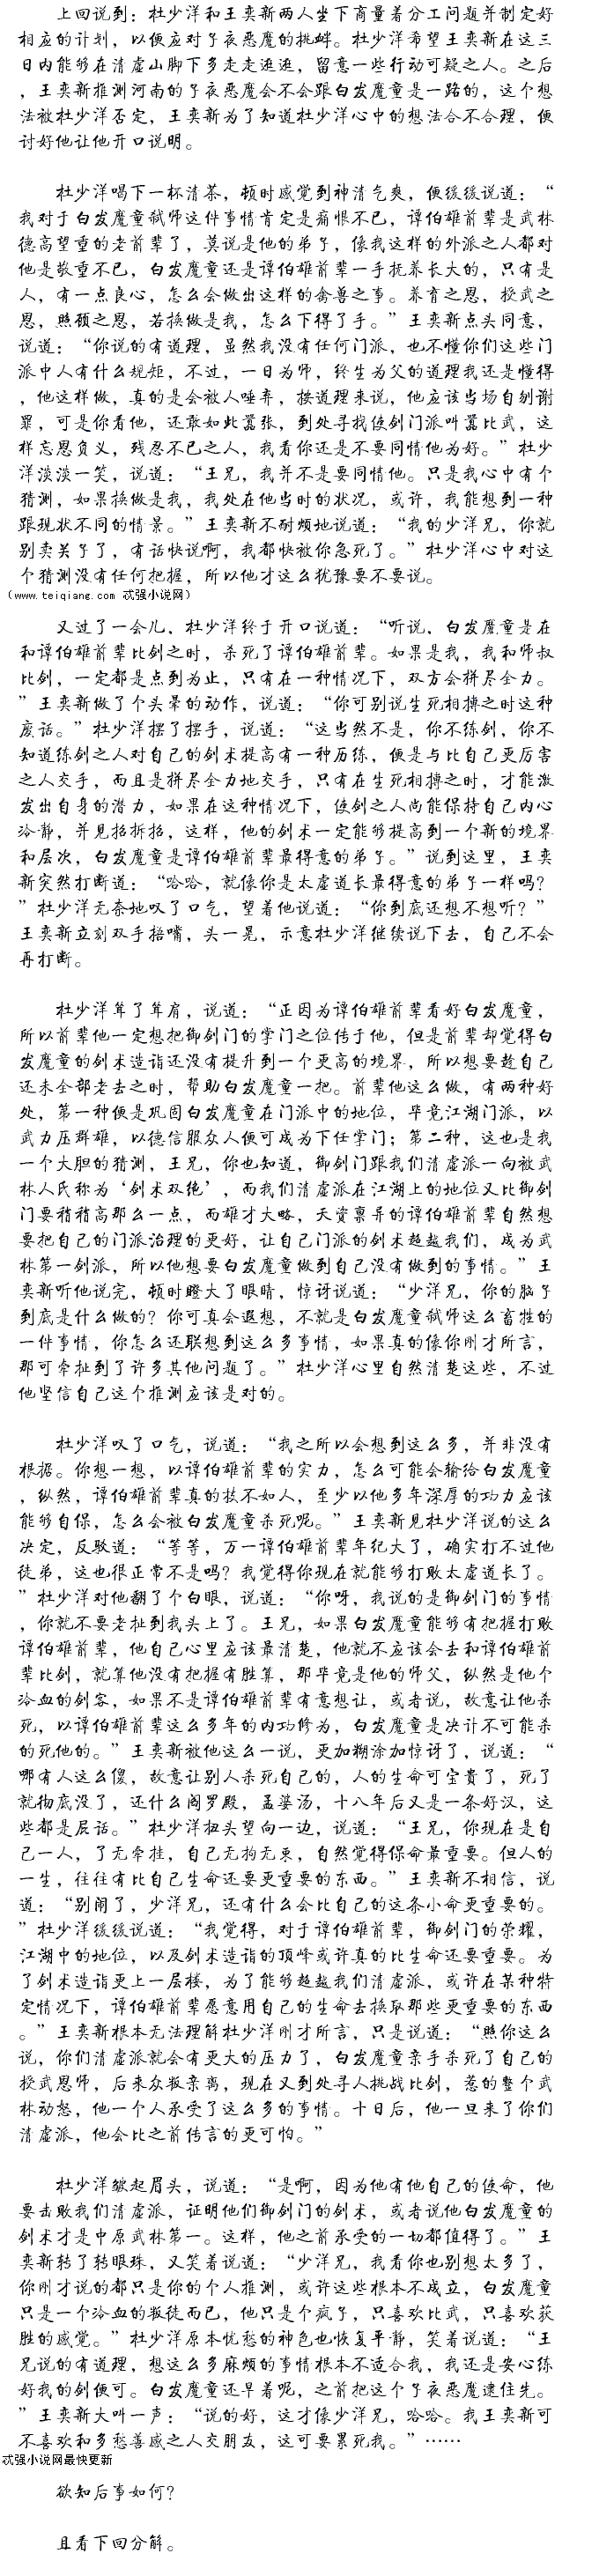 上回说到：杜少洋和王奕新两人坐下商量着分工问题并制定好
相应的计划，以便应对子夜恶魔的挑衅。杜少洋希望王奕新在这三
日内能够在清虚山脚下多走走逛逛，留意一些行动可疑之人。之后
，王奕新推测河南的子夜恶魔会不会跟白发魔童是一路的，这个想
法被杜少洋否定，王奕新为了知道杜少洋心中的想法合不合理，便
讨好他让他开口说明。
杜少洋喝下一杯清茶，顿时感觉到神清气爽，便缓缓说道：“
我对于白发魔童弑师这件事情肯定是痛恨不已，谭伯雄前辈是武林
德高望重的老前辈了，莫说是他的弟子，像我这样的外派之人都对
他是敬重不已，白发魔童还是谭伯雄前辈一手抚养长大的，只有是
人，有一点良心，怎么会做出这样的禽兽之事。养育之恩，授武之
恩，照顾之恩，若换做是我，怎么下得了手。”王奕新点头同意，
说道：“你说的有道理，虽然我没有任何门派，也不懂你们这些门
派中人有什么规矩，不过，一日为师，终生为父的道理我还是懂得
，他这样做，真的是会被人唾弃，按道理来说，他应该当场自刎谢
罪，可是你看他，还敢如此嚣张，到处寻找使剑门派叫嚣比武，这
样忘恩负义，残忍不已之人，我看你还是不要同情他为好。”杜少
洋淡淡一笑，说道：“王兄，我并不是要同情他。只是我心中有个
猜测，如果换做是我，我处在他当时的状况，或许，我能想到一种
跟现状不同的情景。”王奕新不耐烦地说道：“我的少洋兄，你就
别卖关子了，有话快说啊，我都快被你急死了。”杜少洋心中对这
个猜测没有任何把握，所以他才这么犹豫要不要说。
（www.teiqiang.com 忒强小说网）
又过了一会儿，杜少洋终于开口说道：“听说，白发魔童是在
和谭伯雄前辈比剑之时，杀死了谭伯雄前辈。如果是我，我和师叔
比剑，一定都是点到为止，只有在一种情况下，双方会拼尽全力。
”王奕新做了个头晕的动作，说道：“你可别说生死相搏之时这种
废话。”杜少洋摆了摆手，说道：“这当然不是，你不练剑，你不
知道练剑之人对自己的剑术提高有一种历练，便是与比自己更厉害
之人交手，而且是拼尽全力地交手，只有在生死相搏之时，才能激
发出自身的潜力，如果在这种情况下，使剑之人尚能保持自己内心
冷静，并见招拆招，这样，他的剑术一定能够提高到一个新的境界
和层次，白发魔童是谭伯雄前辈最得意的弟子。”说到这里，王奕
新突然打断道：“哈哈，就像你是太虚道长最得意的弟子一样吗？
”杜少洋无奈地叹了口气，望着他说道：“你到底还想不想听？”
王奕新立刻双手捂嘴，头一晃，示意杜少洋继续说下去，自己不会
再打断。
杜少洋耸了耸肩，说道：“正因为谭伯雄前辈看好白发魔童，
所以前辈他一定想把御剑门的掌门之位传于他，但是前辈却觉得白
发魔童的剑术造诣还没有提升到一个更高的境界，所以想要趁自己
还未全部老去之时，帮助白发魔童一把。前辈他这么做，有两种好
处，第一种便是巩固白发魔童在门派中的地位，毕竟江湖门派，以
武力压群雄，以德信服众人便可成为下任掌门；第二种，这也是我
一个大胆的猜测，王兄，你也知道，御剑门跟我们清虚派一向被武
林人氏称为‘剑术双绝’，而我们清虚派在江湖上的地位又比御剑
门要稍稍高那么一点，而雄才大略，天资禀异的谭伯雄前辈自然想
要把自己的门派治理的更好，让自己门派的剑术超越我们，成为武
林第一剑派，所以他想要白发魔童做到自己没有做到的事情。”王
奕新听他说完，顿时瞪大了眼睛，惊讶说道：“少洋兄，你的脑子
到底是什么做的？你可真会遐想，不就是白发魔童弑师这么畜牲的
一件事情，你怎么还联想到这么多事情，如果真的像你刚才所言，
那可牵扯到了许多其他问题了。”杜少洋心里自然清楚这些，不过
他坚信自己这个推测应该是对的。
杜少洋叹了口气，说道：“我之所以会想到这么多，并非没有
根据。你想一想，以谭伯雄前辈的实力，怎么可能会输给白发魔童
，纵然，谭伯雄前辈真的技不如人，至少以他多年深厚的功力应该
能够自保，怎么会被白发魔童杀死呢。”王奕新见杜少洋说的这么
决定，反驳道：“等等，万一谭伯雄前辈年纪大了，确实打不过他
徒弟，这也很正常不是吗？我觉得你现在就能够打败太虚道长了。
”杜少洋对他翻了个白眼，说道：“你呀，我说的是御剑门的事情
，你就不要老扯到我头上了。王兄，如果白发魔童能够有把握打败
谭伯雄前辈，他自己心里应该最清楚，他就不应该会去和谭伯雄前
辈比剑，就算他没有把握有胜算，那毕竟是他的师父，纵然是他个
冷血的剑客，如果不是谭伯雄前辈有意想让，或者说，故意让他杀
死，以谭伯雄前辈这么多年的内功修为，白发魔童是决计不可能杀
的死他的。”王奕新被他这么一说，更加糊涂加惊讶了，说道：“
哪有人这么傻，故意让别人杀死自己的，人的生命可宝贵了，死了
就彻底没了，还什么阎罗殿，孟婆汤，十八年后又是一条好汉，这
些都是屁话。”杜少洋扭头望向一边，说道：“王兄，你现在是自
己一人，了无牵挂，自己无拘无束，自然觉得保命最重要。但人的
一生，往往有比自己生命还要更重要的东西。”王奕新不相信，说
道：“别闹了，少洋兄，还有什么会比自己的这条小命更重要的。
”杜少洋缓缓说道：“我觉得，对于谭伯雄前辈，御剑门的荣耀，
江湖中的地位，以及剑术造诣的顶峰或许真的比生命还要重要。为
了剑术造诣更上一层楼，为了能够超越我们清虚派，或许在某种特
定情况下，谭伯雄前辈愿意用自己的生命去换取那些更重要的东西
。”王奕新根本无法理解杜少洋刚才所言，只是说道：“照你这么
说，你们清虚派就会有更大的压力了，白发魔童亲手杀死了自己的
授武恩师，后来众叛亲离，现在又到处寻人挑战比剑，惹的整个武
林动怒，他一个人承受了这么多的事情。十日后，他一旦来了你们
清虚派，他会比之前传言的更可怕。”
杜少洋皱起眉头，说道：“是啊，因为他有他自己的使命，他
要击败我们清虚派，证明他们御剑门的剑术，或者说他白发魔童的
剑术才是中原武林第一。这样，他之前承受的一切都值得了。”王
奕新转了转眼珠，又笑着说道：“少洋兄，我看你也别想太多了，
你刚才说的都只是你的个人推测，或许这些根本不成立，白发魔童
只是一个冷血的叛徒而已，他只是个疯子，只喜欢比武，只喜欢获
胜的感觉。”杜少洋原本忧愁的神色也恢复平静，笑着说道：“王
兄说的有道理，想这么多麻烦的事情根本不适合我，我还是安心练
好我的剑便可。白发魔童还早着呢，之前把这个子夜恶魔逮住先。
”王奕新大叫一声：“说的好，这才像少洋兄，哈哈。我王奕新可
不喜欢和多愁善感之人交朋友，这可要累死我。”……
忒强小说网最快更新
欲知后事如何？
且看下回分解。